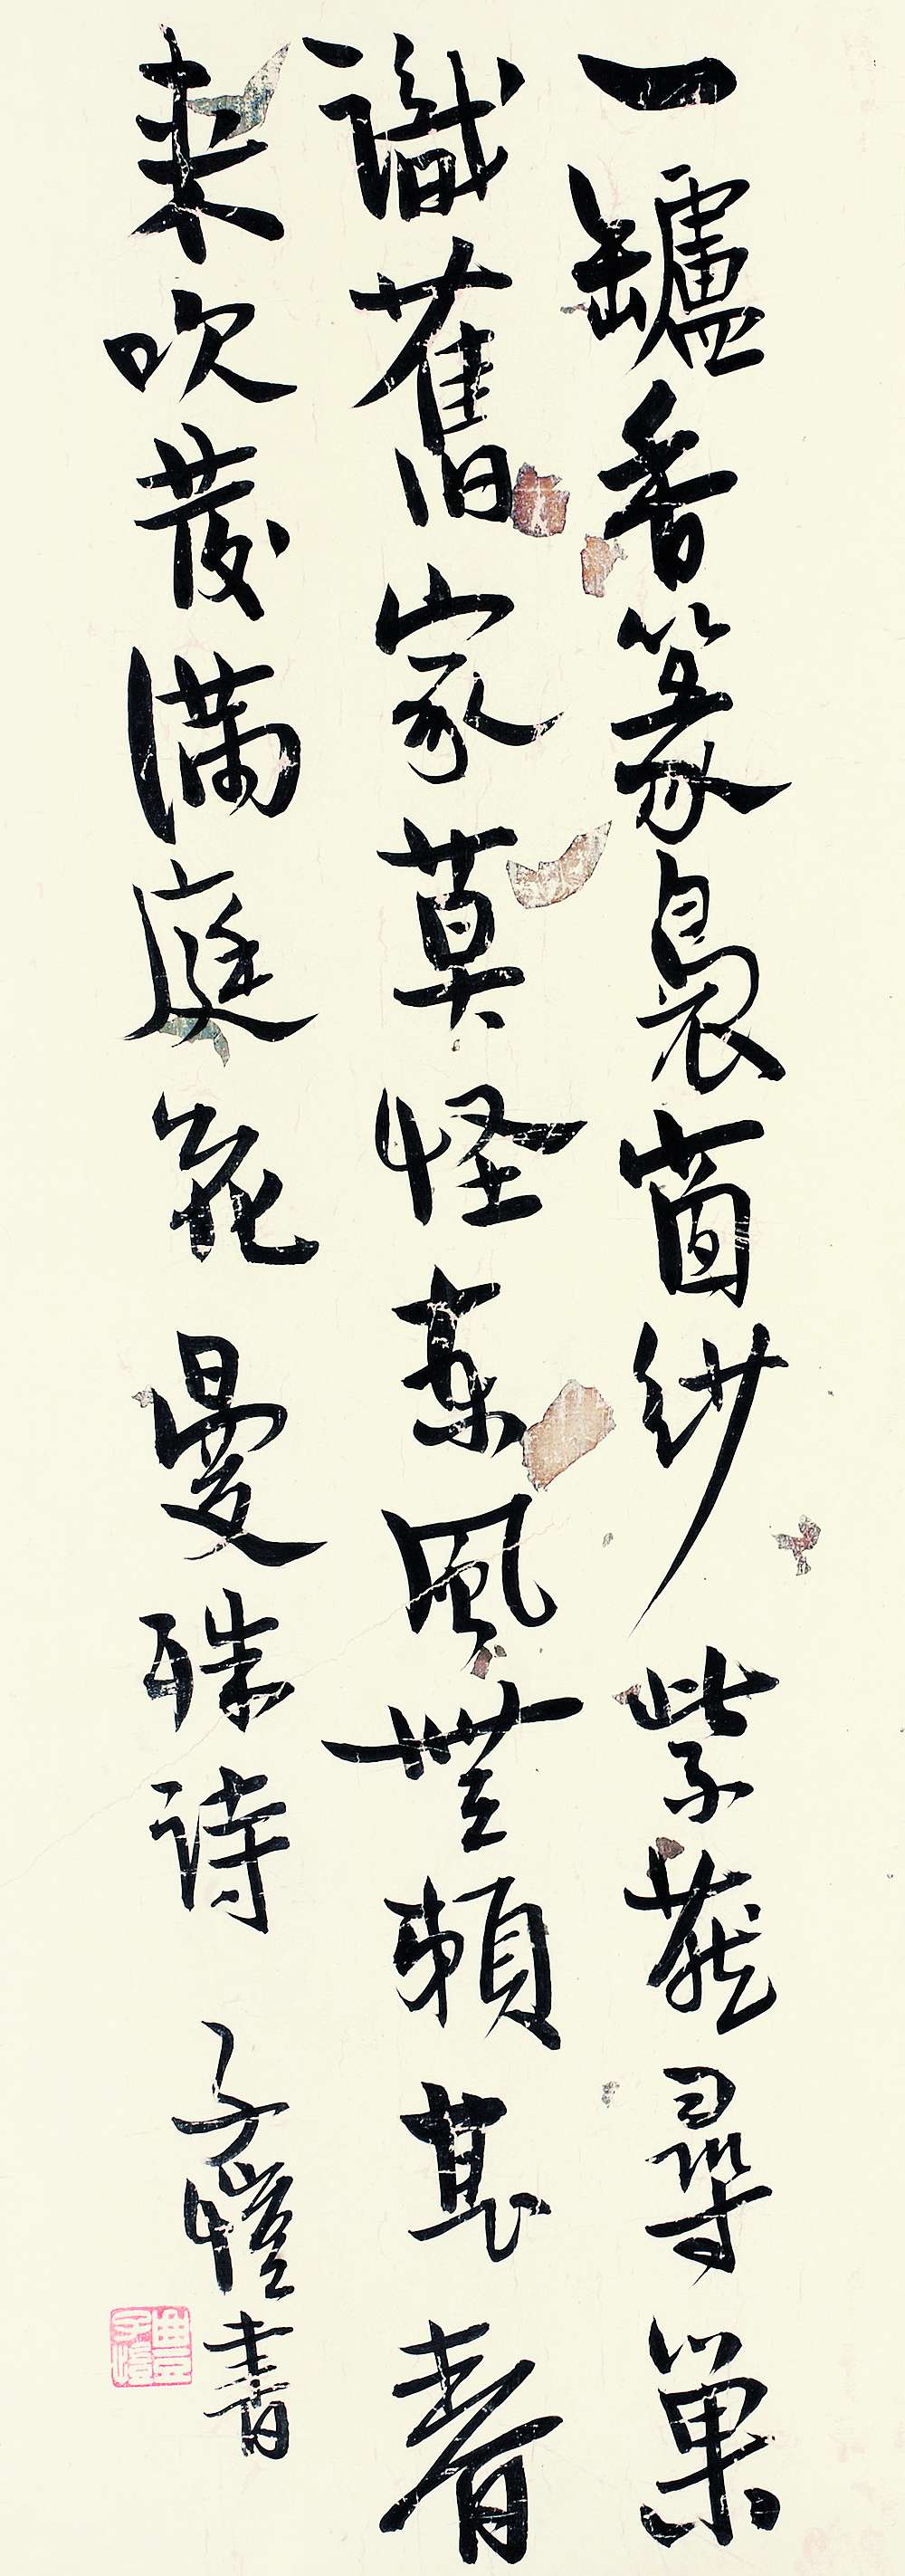 一罏香篆裊窗紗紫燕尋巢
識舊家莫怪東風無賴甚春
來吹發滿庭花曼殊詩子愷書
豐子愷